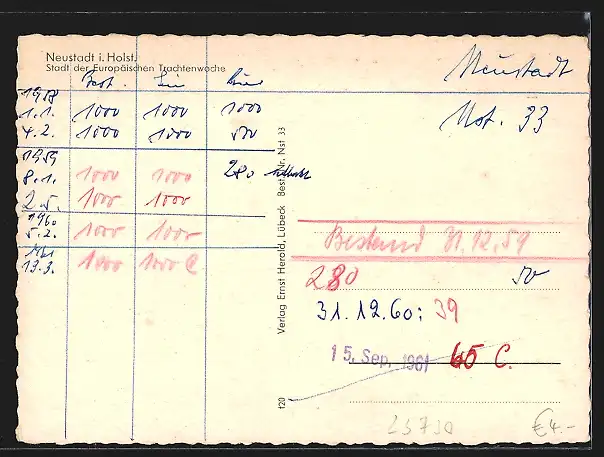 Neustadt i. Holst.
Stadt der Europäischen Trachtenwoche
Neustadt
Nst. 33
Best.
1958
1.1. 1000 1000 1000
4.2. 1000 1000 500
1959
8.1. 1000 1000 280
2.5. 1000 1000
1960
5.2. 1000 1000
1961
13.3. 1000 1000 C
Verlag Ernst Herold, Lübeck Best. Nr. Nst 33
120
Bestand 31.12.59
280 50
31.12.60: 39
15. Sep. 1961 65 C.
€4.-